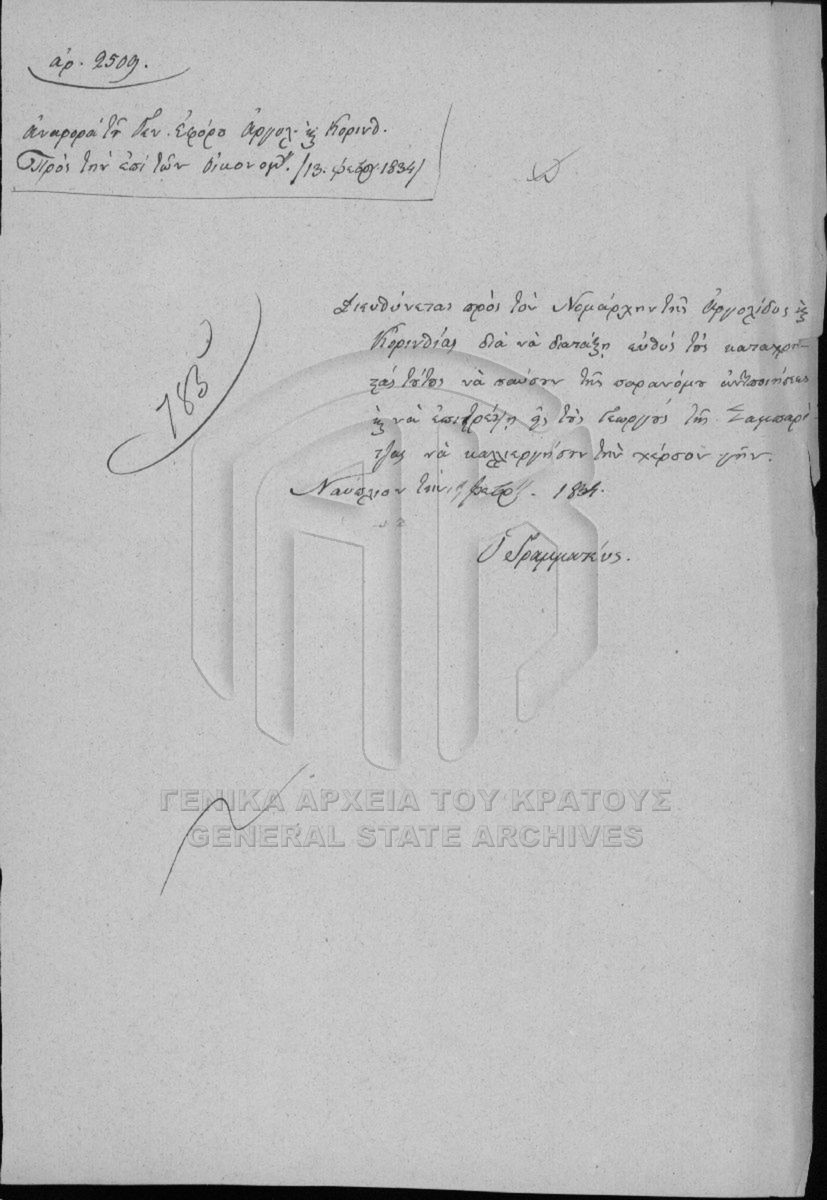 ἀρ. 2509.
Ἀναφορὰ τῆς Γεν. Ἐφόρου Ἀργολ. καὶ Κορινθ.
Πρὸς τὴν ἐπὶ τῶν Οἰκονομ. /13. Φεβρ 1834/
Διευθύνεται πρὸς τὸν Νομάρχην τῆς Ἀργολίδος καὶ
Κορινθίας διὰ νὰ διατάξῃ εὐθὺς τοὺς καταχρη-
τὰς τούτους νὰ παύσουν τῆς παρανόμου ἀντιποιήσεως
καὶ νὰ ἐπιτρέψῃ εἰς τοὺς γεωργοὺς τῆς Σαμπαρί-
τζας νὰ καλλιεργήσουν τὴν χέρσον γῆν.
783
Ναύπλιον τὴν Φεβρ. 1834.
Ὁ Γραμματεύς.
ΓΕΝΙΚΑ ΑΡΧΕΙΑ ΤΟΥ ΚΡΑΤΟΥΣ
GENERAL STATE ARCHIVES